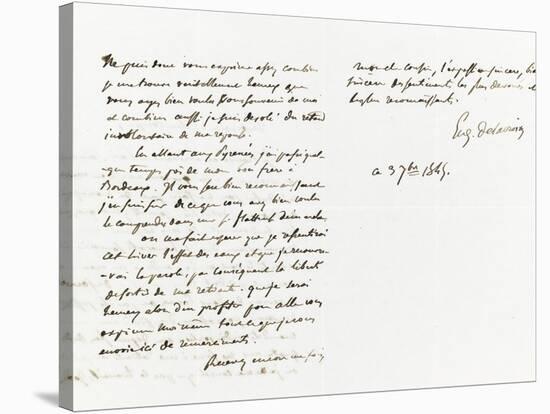 Ne puis donc vous exprimer assez combien
je me trouve véritablement heureux que
vous ayez bien voulu vous souvenir de moi
et combien aussi je suis désolé du retard
involontaire de ma réponse.
En allant aux Pyrénées j'ai passé quel-
que temps près de mon frère à
Bordeaux. Il vous sera bien reconnaissant
de ce que vous avez bien voulu
le comprendre dans une si flatteuse demande.
On me fait espérer que je ressentirai
cet hiver l'effet des eaux et que je recouvre-
rai la parole, par conséquent la liberté
de sortir de ma retraite. que je serai
heureux alors d'en profiter pour aller vous
exprimer moi même tout ce que je vous
envoie ici de remerciements.
Recevez encore une fois
mon cher cousin, l'expression sincère, bien
sincère des sentiments les plus dévoués et
les plus reconnaissants.
Eug. Delacroix
ce 3 7bre 1845.